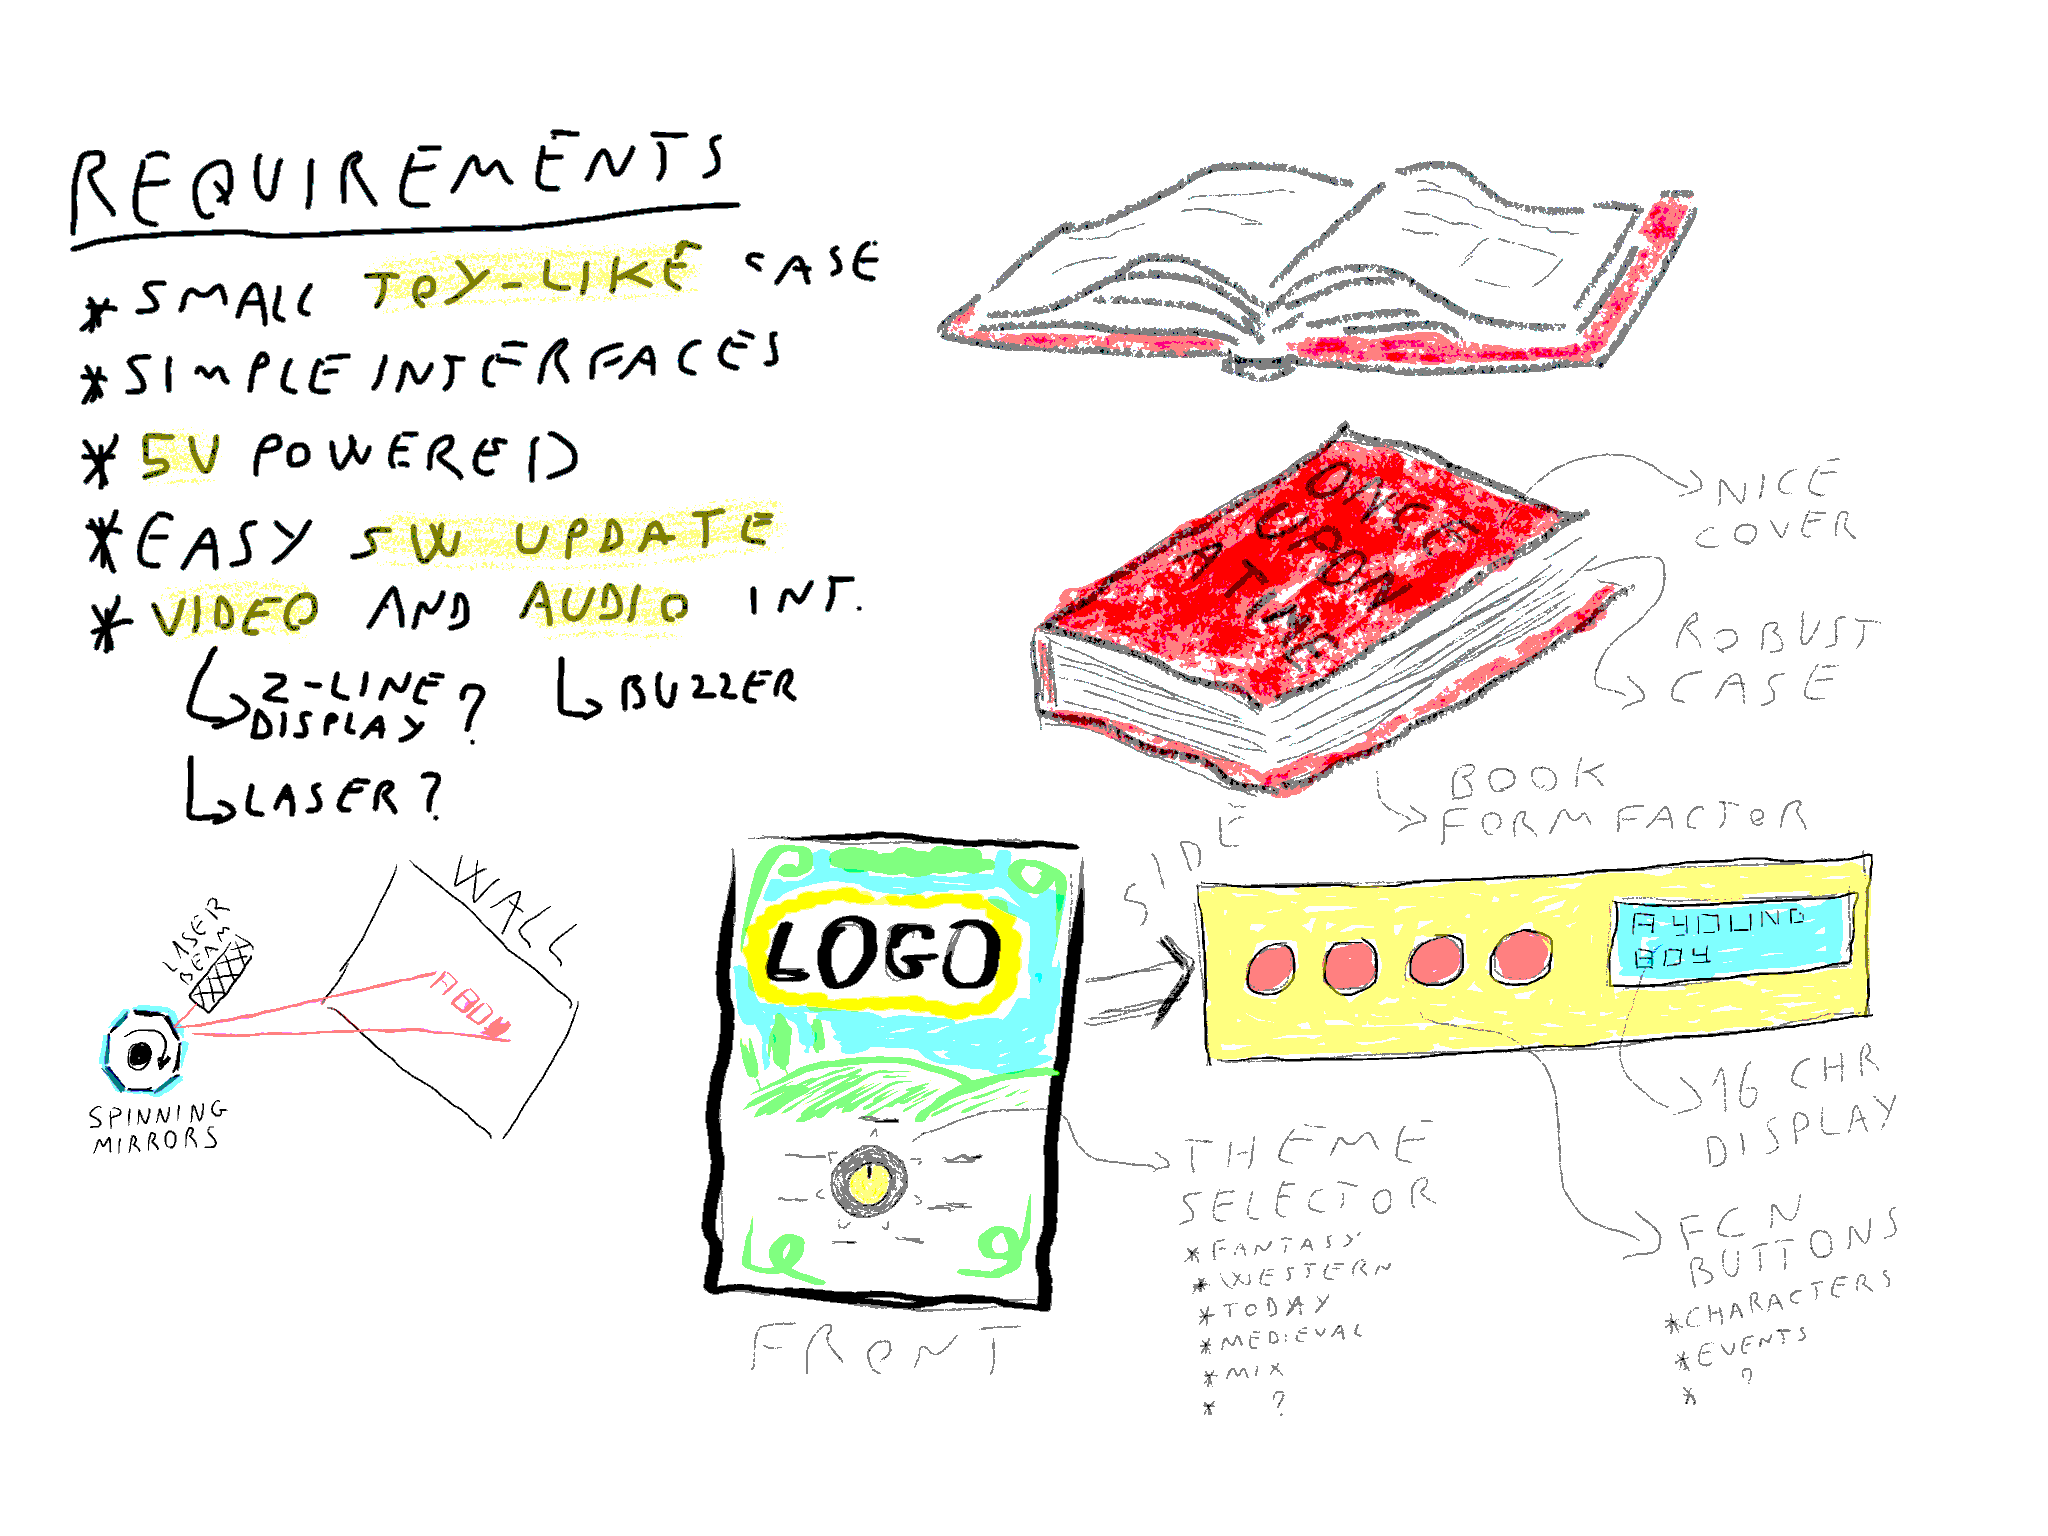 REQUIREMENTS
* SMALL TOY-LIKE CASE
* SIMPLE INTERFACES
* 5V POWERED
* EASY SW UPDATE
* VIDEO AND AUDIO INT.
2-LINE
DISPLAY?
BUZZER
LASER?
WALL
LASER
BEAM
ABOY
SPINNING
MIRRORS
ONCE
UPON
A TIME
NICE
COVER
ROBUST
CASE
BOOK
FORM FACTOR
LOGO
FRONT
SIDE
A YOUNG
BOY
16 CHR
DISPLAY
THEME
SELECTOR
* FANTASY
* WESTERN
* TODAY
* MEDIEVAL
* MIX
* ?
FCN
BUTTONS
* CHARACTERS
* EVENTS
* ?